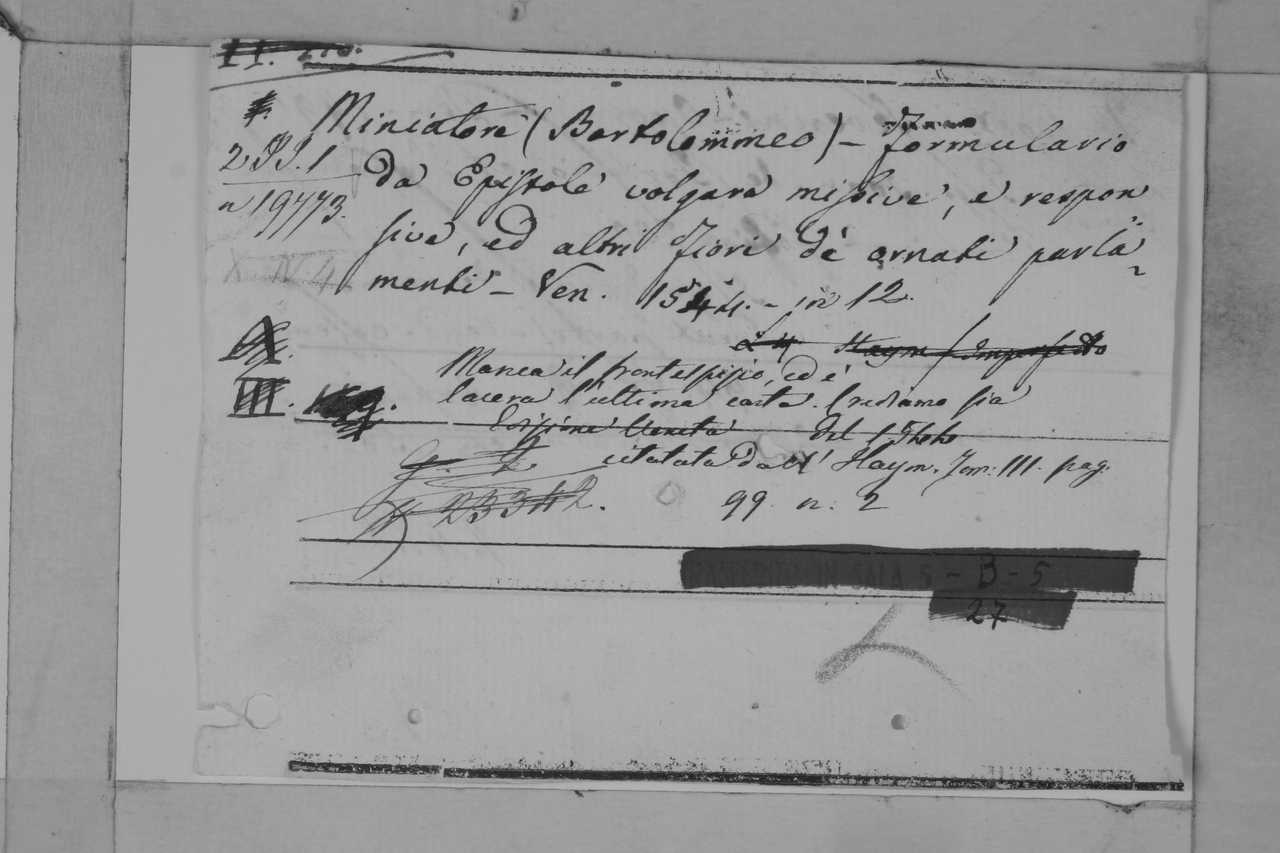 Miniatore (Bartolommeo) – Formulario
2 JJ. 1
da Epistole volgara missive, e respon
n 19773.
sive, ed altri Fiori de ornati parla
X N. 4
menti – Ven. 1544. – in 12.
Haym / Imperfetto
Manca il frontespizio, ed è
III.
lacera l'ultima carta. Crediamo sia
Edizione Veneta del
citatata dall' Haym. Tom: III. pag.
n 23342.
99. n. 2
SALA 5 – B – 5
27